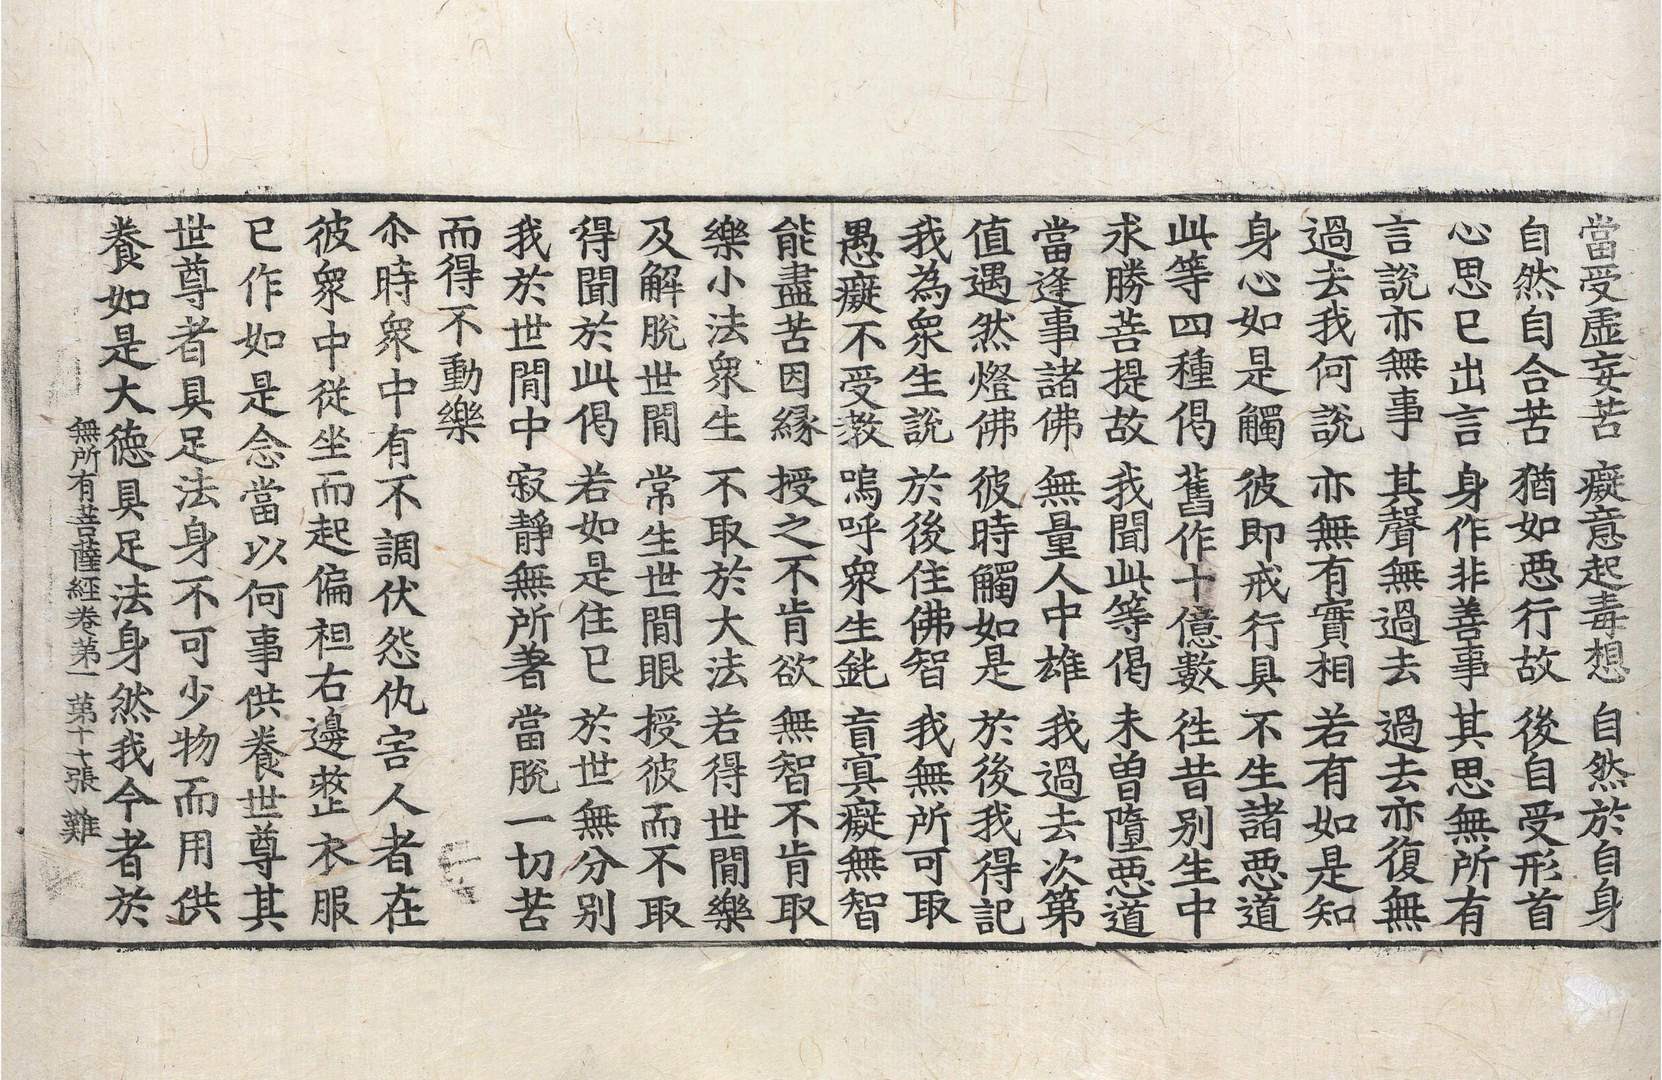 當受虛妄苦　癡意起毒想　自然於自身
自然自合苦　猶如惡行故　後自受形首
心思已出言　身作非善事　其思無所有
言說亦無事　其聲無過去　過去亦復無
過去我何說　亦無有實相　若有如是知
身心如是觸　彼即戒行具　不生諸惡道
此等四種偈　舊作十億數　往昔别生中
求勝菩提故　我聞此等偈　未曾墮惡道
當逢事諸佛　無量人中雄　我過去次第
值遇然燈佛　彼時觸如是　於後我得記
我為衆生說　於後住佛智　我無所可取
愚癡不受教　嗚呼衆生鈍　盲冥癡無智
能盡苦因縁　授之不肯欲　無智不肯取
樂小法衆生　不取於大法　若得世間樂
及解脫世間　常生世間眼　授彼而不取
得聞於此偈　若如是住已　於世無分别
我於世間中　寂靜無所著　當脫一切苦
而得不動樂
尒時衆中有不調伏怨仇害人者在
彼衆中從坐而起偏袒右邊整衣服
已作如是念當以何事供養世尊其
世尊者具足法身不可少物而用供
養如是大德具足法身然我今者於
無所有菩薩經卷第一　第十七張　難